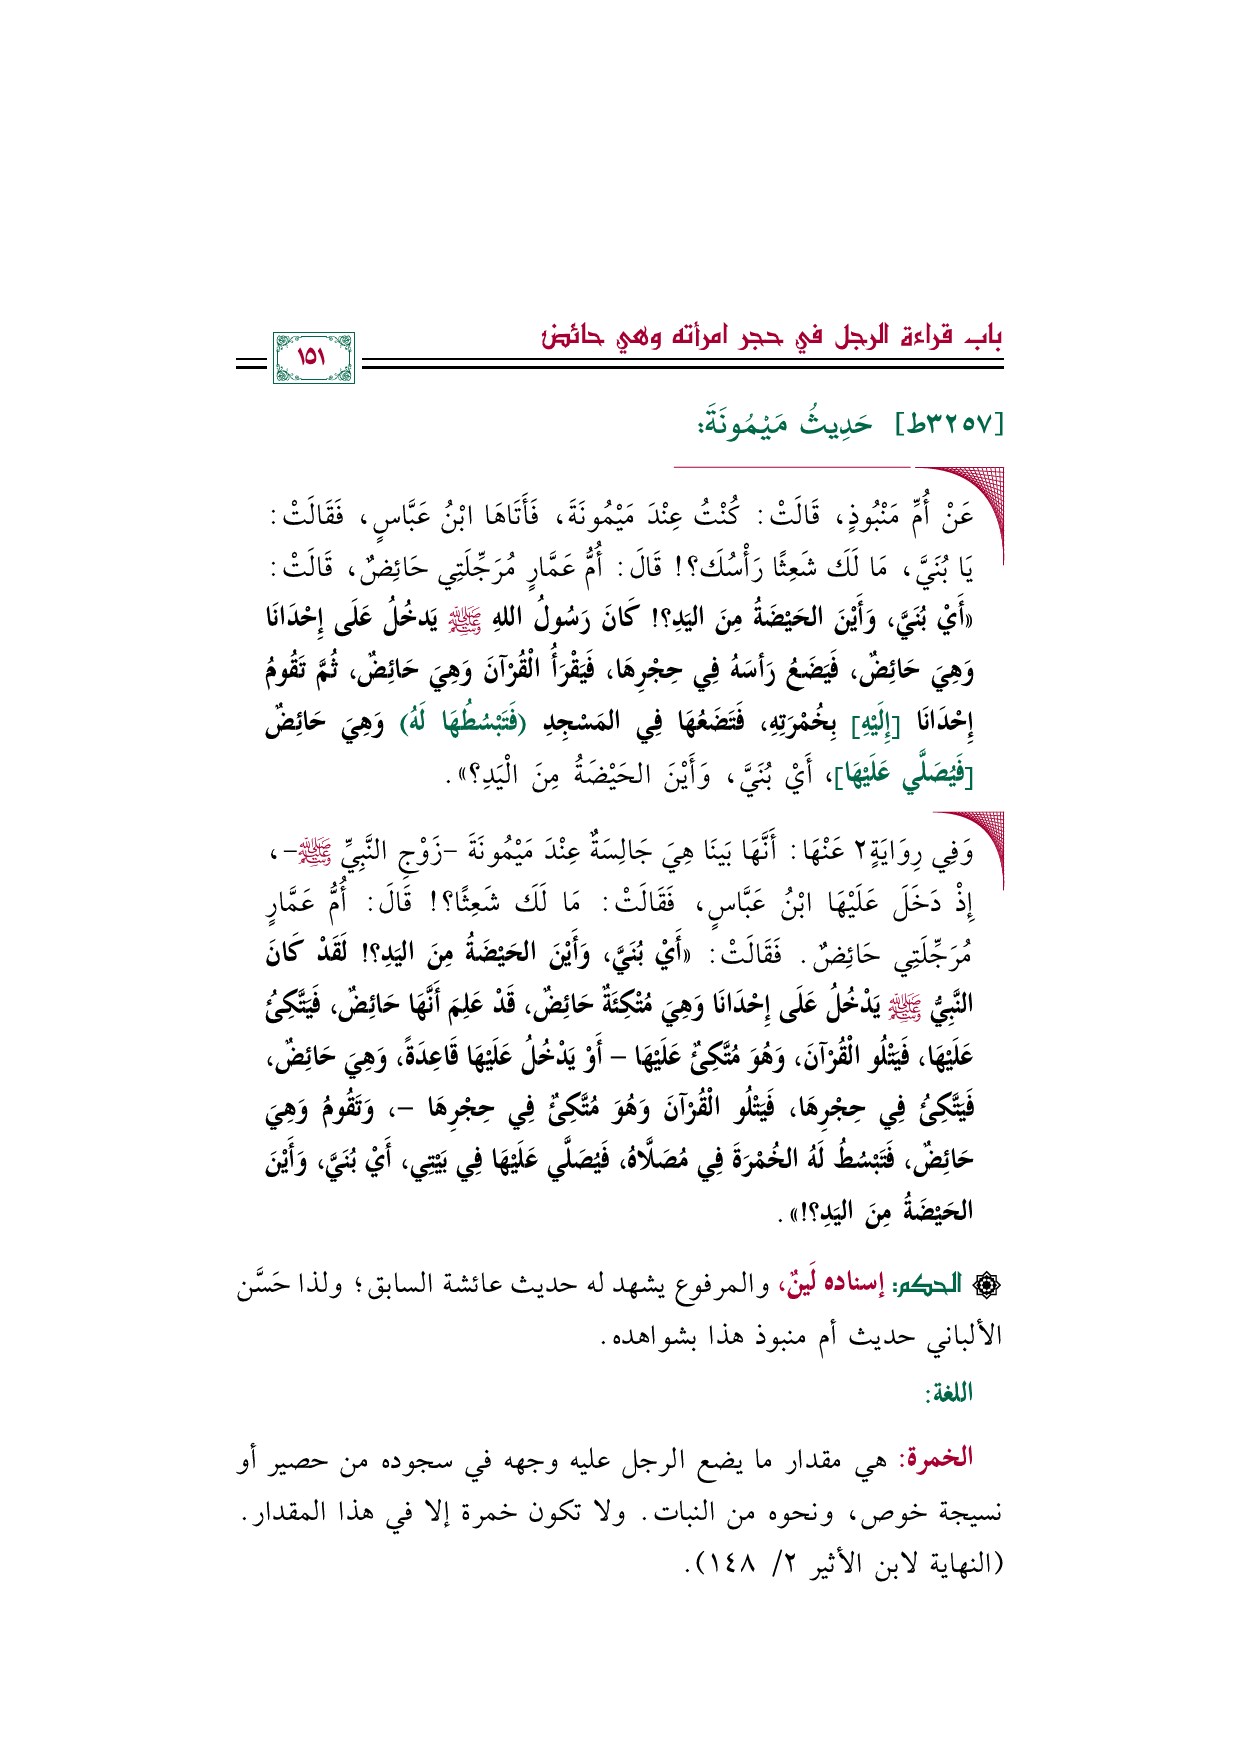 باب قراءة الرجل في حجر امرأته وهي حائض
١٥١
[٣٢٥٧ط] حَدِيثُ مَيْمُونَةَ:
عَنْ أُمِّ مَنْبُوذٍ، قَالَتْ: كُنْتُ عِنْدَ مَيْمُونَةَ، فَأَتَاهَا ابْنُ عَبَّاسٍ، فَقَالَتْ:
يَا بُنَيَّ، مَا لَكَ شَعِثًا رَأْسُكَ؟! قَالَ: أُمُّ عَمَّارٍ مُرَجِّلَتِي حَائِضٌ، قَالَتْ:
«أَيْ بُنَيَّ، وَأَيْنَ الحَيْضَةُ مِنَ اليَدِ؟! كَانَ رَسُولُ اللهِ ﷺ يَدخُلُ عَلَى إِحْدَانَا
وَهِيَ حَائِضٌ، فَيَضَعُ رَأسَهُ فِي حِجْرِهَا، فَيَقْرَأُ الْقُرْآنَ وَهِيَ حَائِضٌ، ثُمَّ تَقُومُ
إِحْدَانَا [إِلَيْهِ] بِخُمْرَتِهِ، فَتَضَعُهَا فِي المَسْجِدِ (فَتَبْسُطُهَا لَهُ) وَهِيَ حَائِضٌ
[فَيُصَلَّي عَلَيْهَا]، أَيْ بُنَيَّ، وَأَيْنَ الحَيْضَةُ مِنَ الْيَدِ؟».
وَفِي رِوَايَةٍ٢ عَنْهَا: أَنَّهَا بَينَا هِيَ جَالِسَةٌ عِنْدَ مَيْمُونَةَ -زَوْجِ النَّبِيِّ ﷺ-،
إِذْ دَخَلَ عَلَيْهَا ابْنُ عَبَّاسٍ، فَقَالَتْ: مَا لَكَ شَعِثًا؟! قَالَ: أُمُّ عَمَّارٍ
مُرَجِّلَتِي حَائِضٌ. فَقَالَتْ: «أَيْ بُنَيَّ، وَأَيْنَ الحَيْضَةُ مِنَ اليَدِ؟! لَقَدْ كَانَ
النَّبِيُّ ﷺ يَدْخُلُ عَلَى إِحْدَانَا وَهِيَ مُتْكِئَةٌ حَائِضٌ، قَدْ عَلِمَ أَنَّهَا حَائِضٌ، فَيَتَّكِئُ
عَلَيْهَا، فَيَتْلُو الْقُرْآنَ، وَهُوَ مُتَّكِئٌ عَلَيْهَا – أَوْ يَدْخُلُ عَلَيْهَا قَاعِدَةً، وَهِيَ حَائِضٌ،
فَيَتَّكِئُ فِي حِجْرِهَا، فَيَتْلُو الْقُرْآنَ وَهُوَ مُتَّكِئٌ فِي حِجْرِهَا –، وَتَقُومُ وَهِيَ
حَائِضٌ، فَتَبْسُطُ لَهُ الخُمْرَةَ فِي مُصَلَّاهُ، فَيُصَلَّي عَلَيْهَا فِي بَيْتِي، أَيْ بُنَيَّ، وَأَيْنَ
الحَيْضَةُ مِنَ اليَدِ؟!».
الحكم: إسناده لَينٌ، والمرفوع يشهد له حديث عائشة السابق؛ ولذا حَسَّن
الألباني حديث أم منبوذ هذا بشواهده.
اللغة:
الخمرة: هي مقدار ما يضع الرجل عليه وجهه في سجوده من حصير أو
نسيجة خوص، ونحوه من النبات. ولا تكون خمرة إلا في هذا المقدار.
(النهاية لابن الأثير ٢/ ١٤٨).